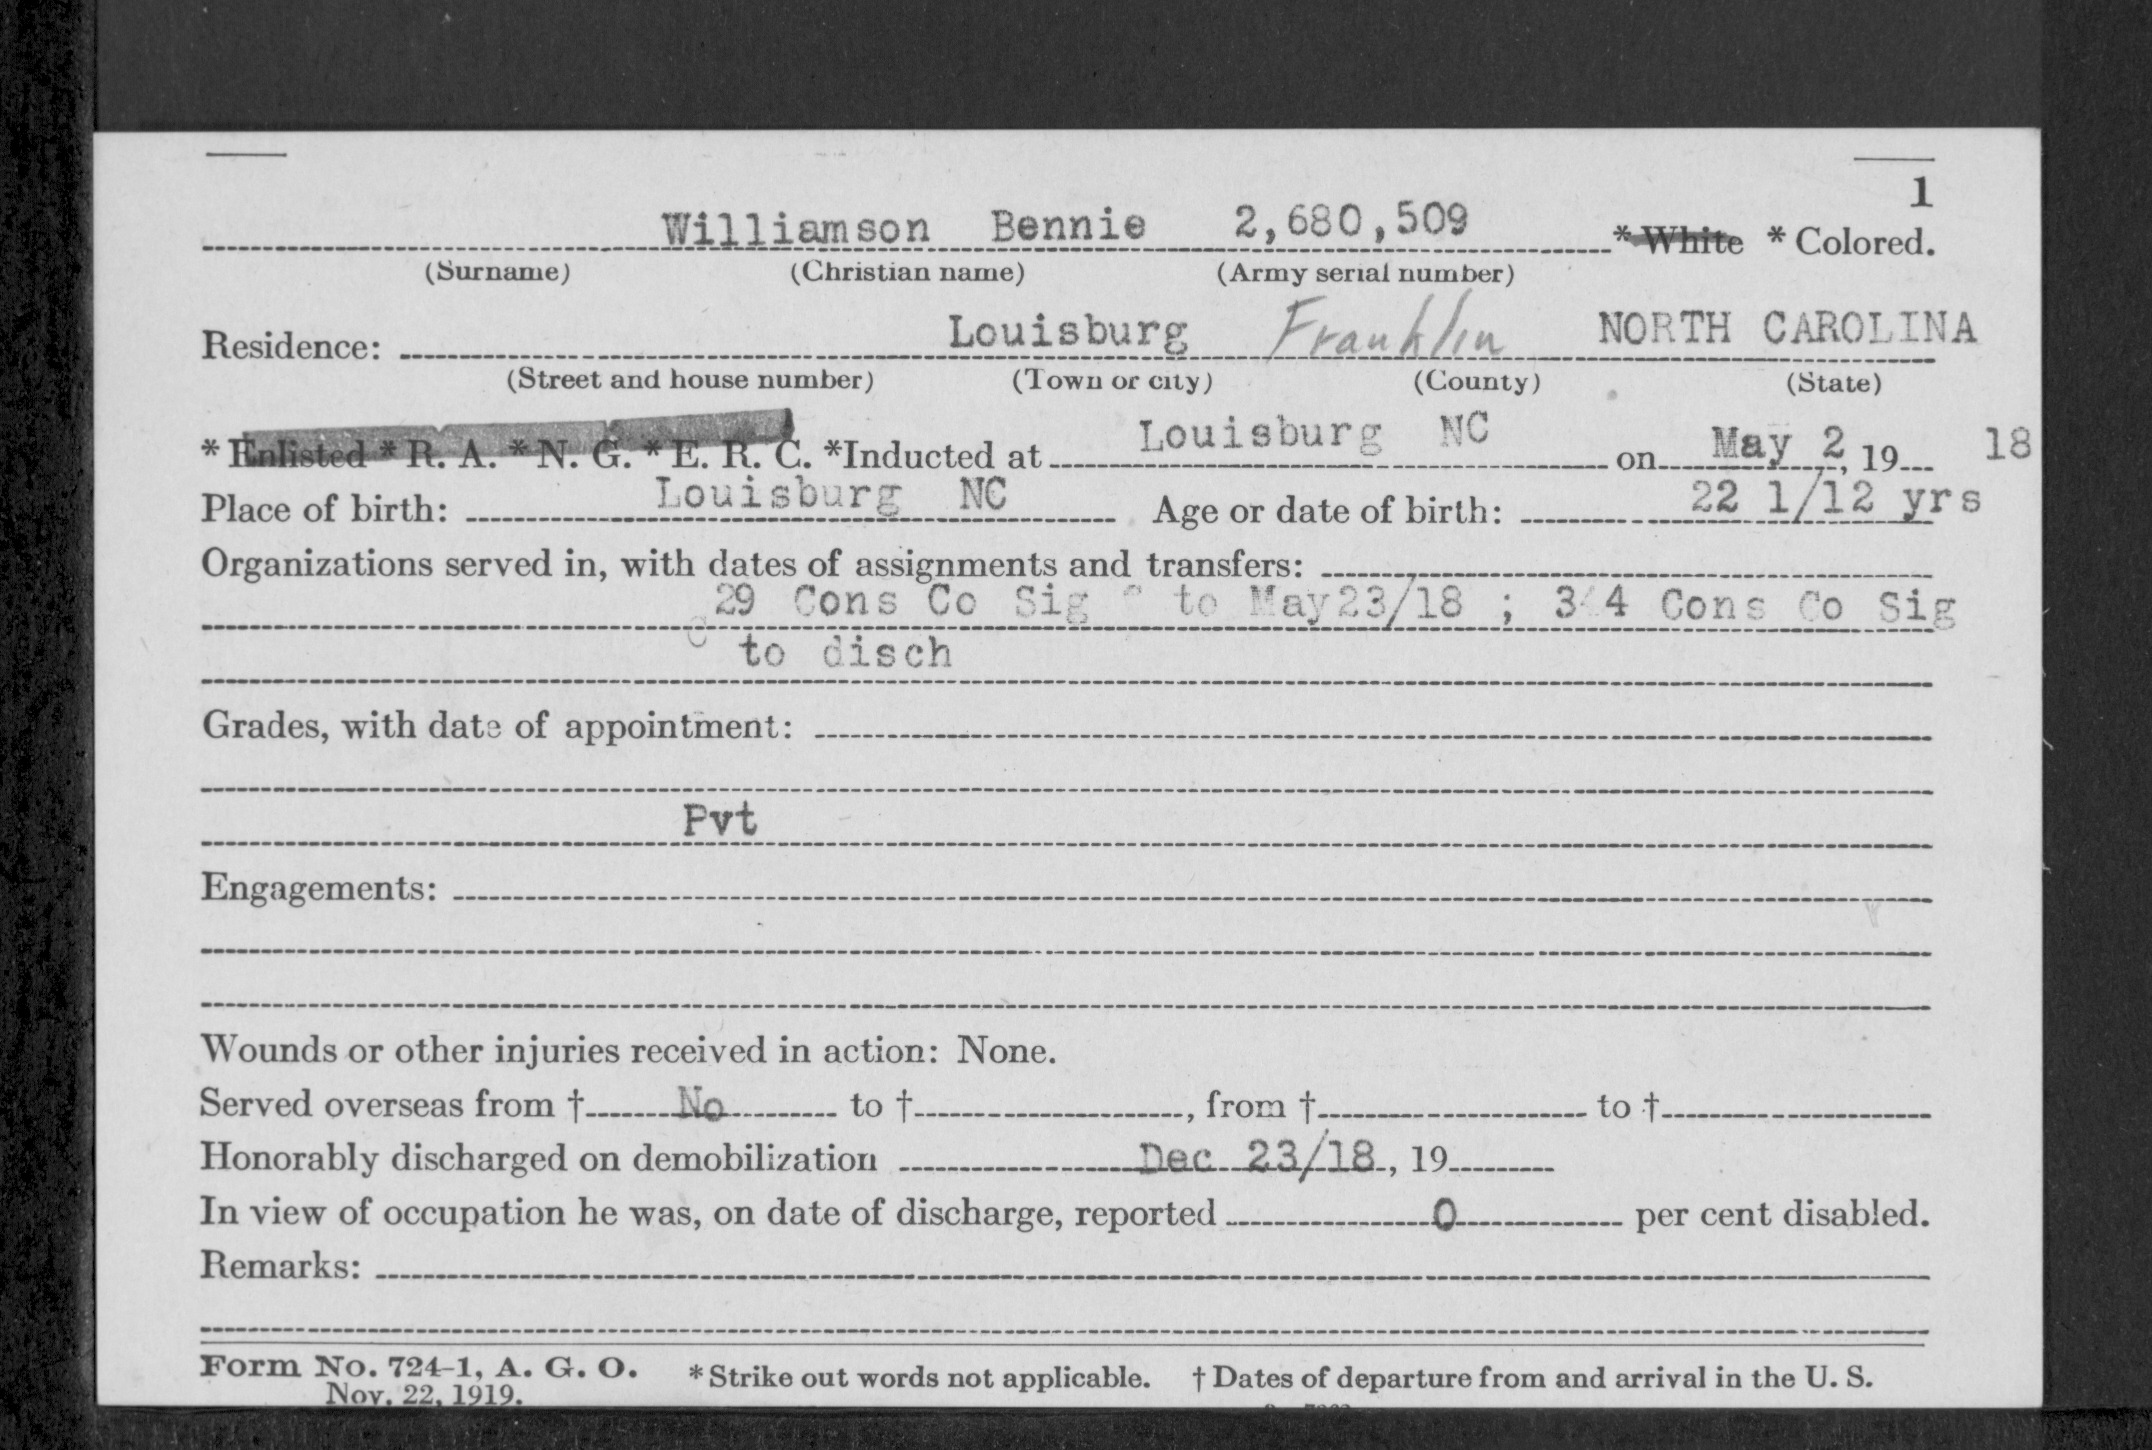 1
Williamson Bennie 2,680,509 *White *Colored.
(Surname) (Christian name) (Army serial number)
Residence: Louisburg Franklin NORTH CAROLINA
(Street and house number) (Town or city) (County) (State)
*Enlisted *R. A. *N. G. *E. R. C. *Inducted at Louisburg NC on May 2, 19 18
Place of birth: Louisburg NC Age or date of birth: 22 1/12 yrs
Organizations served in, with dates of assignments and transfers:
29 Cons Co Sig C to May23/18 ; Cons Co Sig
C to disch
Grades, with date of appointment:
Pvt
Engagements:
Wounds or other injuries received in action: None.
Served overseas from † No to †, from † to †
Honorably discharged on demobilization Dec 23/18, 19
In view of occupation he was, on date of discharge, reported 0 per cent disabled.
Remarks:
Form No. 724-1, A. G. O. *Strike out words not applicable. †Dates of departure from and arrival in the U. S.
Nov. 22, 1919.